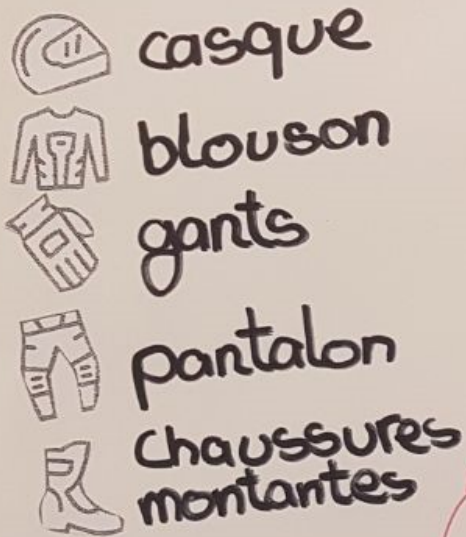 casque
blouson
gants
pantalon
chaussures
montantes